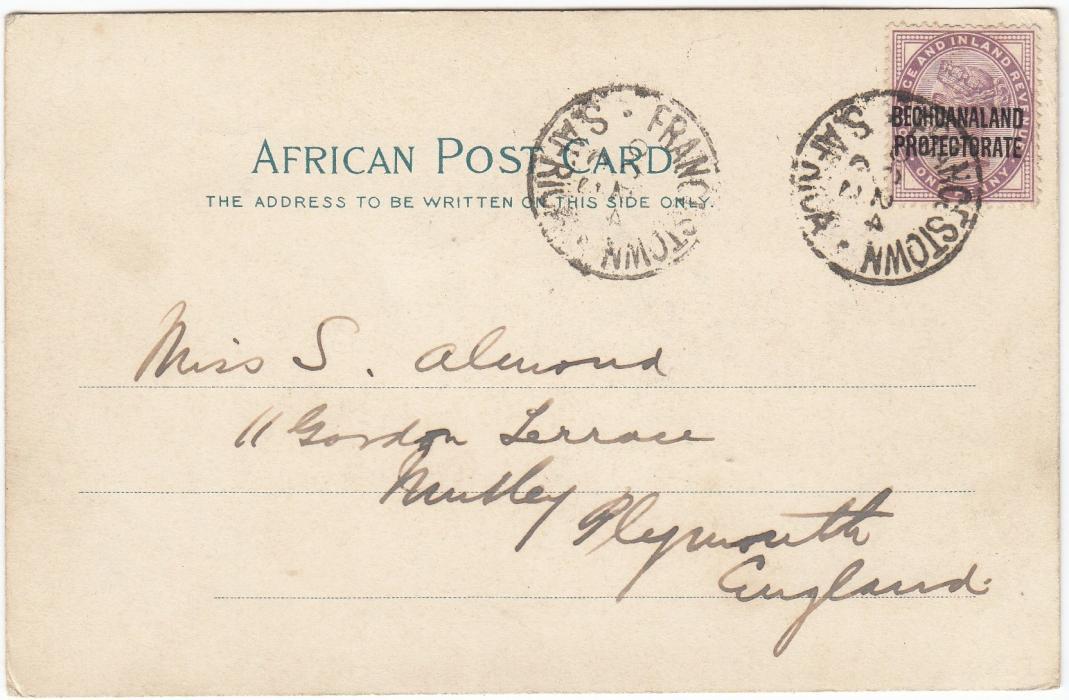 AFRICAN POST CARD.
THE ADDRESS TO BE WRITTEN ON THIS SIDE ONLY.
FRANCISTOWN
S. AFRICA
FRANCISTOWN
S. AFRICA
POSTAGE AND INLAND REVENUE
ONE PENNY
BECHUANALAND
PROTECTORATE
Miss S. Almond
11 Gordon Terrace
Mutley
Plymouth
England.